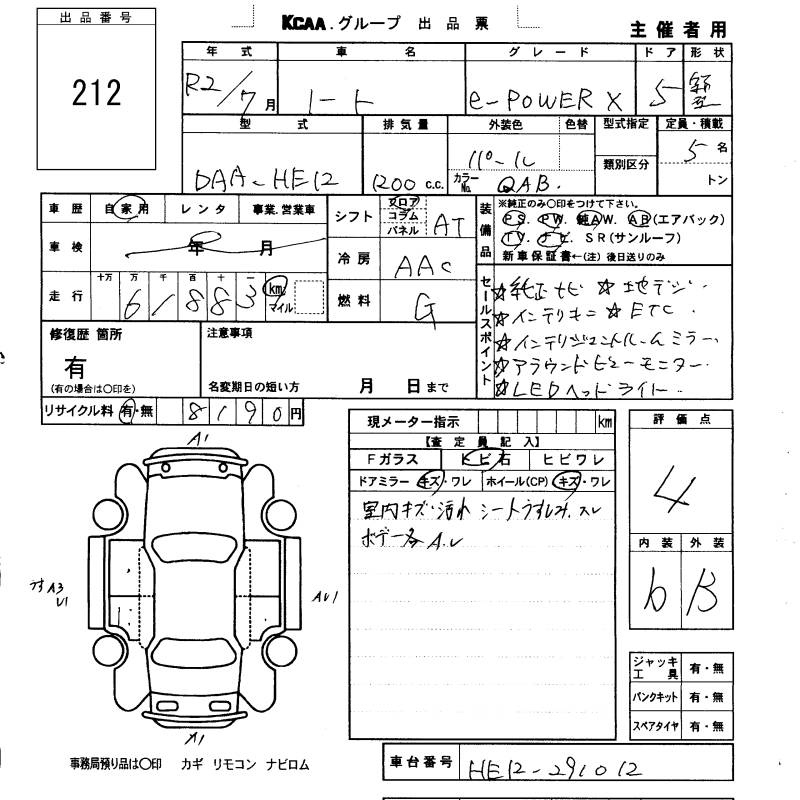 出品番号
212
KCAA.グループ 出品票
主催者用
年式 車名 グレード ドア 形状
R2/7月 ノート e-POWER X 5
型式 排気量 外装色 色替 型式指定 定員・積載
類別区分
DAA-HE12 1200 c.c. パール カラーNo. QAB. 5名
トン
車歴 自家用 レンタ 事業.営業車
車検 年 月
走行 十万 万 千 百 十 一
6 1 8 8 3 km マイル
シフト フロア コラム パネル AT
冷房 AAC
燃料 G
装備品
※純正のみ○印をつけて下さい。
PS. PW. 純AW. AB(エアバック)
TV. ナビ. SR(サンルーフ)
新車保証書←(注) 後日送りのみ
セールスポイント
☆純正ナビ ☆地デジ
☆インテリキー ☆ETC.
☆インテリジェントルームミラー.
☆アラウンドビューモニター.
☆LEDヘッドライト.
修復歴 箇所
有
(有の場合は○印を)
注意事項
名変期日の短い方 月 日まで
リサイクル料 有・無 8190円
現メーター指示 km
【査定員記入】
Fガラス ヒビ石 ヒビワレ
ドアミラー キズ・ワレ ホイール(CP) キズ・ワレ
室内キズ・汚れ シートうすしみ.スレ
ボデー各A.U
評価点
4
内装 外装
b B
A1
うすA3
U1
AU1
A1
ジャッキ工具 有・無
パンクキット 有・無
スペアタイヤ 有・無
事務局預り品は○印 カギ リモコン ナビロム
車台番号 HE12-291012